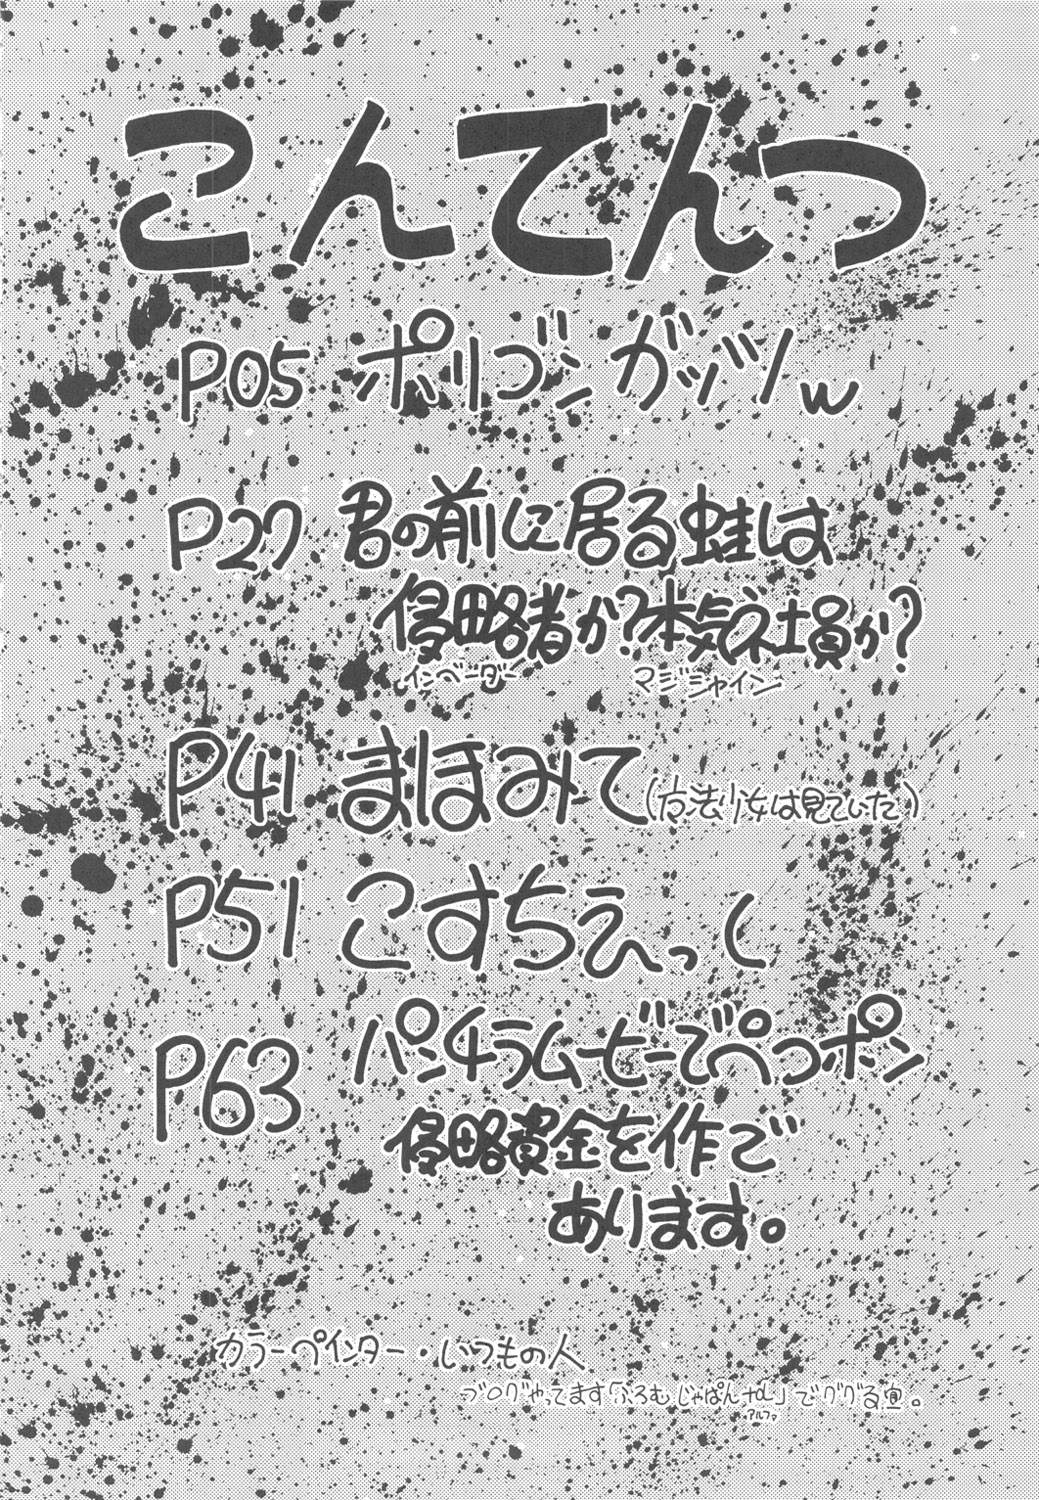 こんてんつ
P05 ポリゴンガッツw
P27 君の前に居る蛙は
侵略者か?本気ネ土員か?
インベーダー マジシャイン
P41 まほみて(方法少女は見ていた)
P51 こすちぇっく
P63 パンチラムービーでペコポン
侵略資金を作で
あります。
カラーペインター・いつもの人
ブログやってます「ふろむじゃぱん」でググる宜。
アルファ